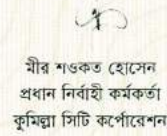 মীর শওকত হোসেন
প্রধান নির্বাহী কর্মকর্তা
কুমিল্লা সিটি কর্পোরেশন